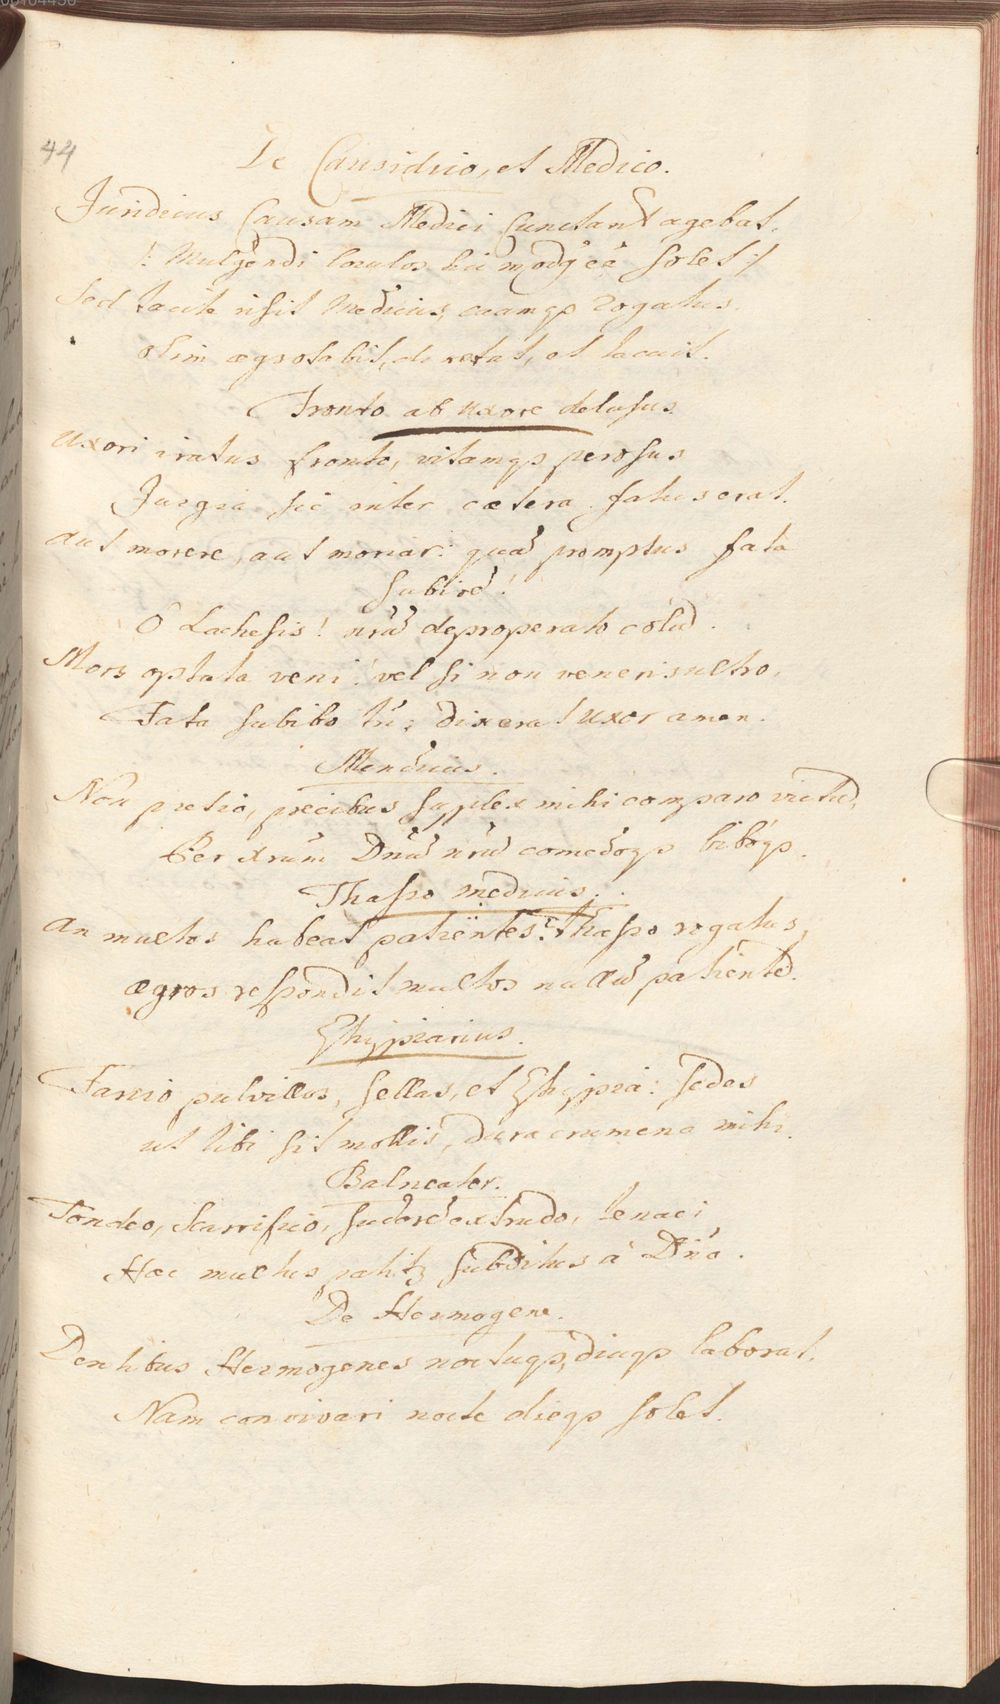 44
De Causidico, et Medico.
Juridicus Causam Medici Cunctant agebat,
/: Mulgendi loculos hic modq eē solet :/
Sed tacite risit Medicus, curamqꝫ rogatus.
olim aegrotabit, et tacuit.
Fronto ab uxore delusus
Uxori iratus fronto, vitamqꝫ perosus
Jurgia sic inter caetera fatus erat.
aut morere, aut moriar: quā promptus fata
subirē!
O Lachesis! nrā deproperato colū.
Mors optata veni! vel si non veneris ultro,
Fata subibo dixerat uxor amen.
Mendicus.
Non pretio, precibus suplex mihi comparo victū,
Per Xrum Dnū nrū comedoqꝫ biboqꝫ.
Thaspo medicus.
An multos habeat patientes? Thaspo rogatus,
aegros respondit multos nullū patientē.
Ephippiarius.
Farcio pulvillos, sellas, et Ephippia: sedes
ut tibi sit mollis, dura crumena mihi.
Balneator.
Tondeo, Scarrifico, sudorē extrudo, tenaci
Haec multus patitꝫ subditus à Dnō.
De Hermogene.
Dentibus Hermogenes noctuqꝫ, diuqꝫ laborat,
Nam convivari nocte dieqꝫ solet.